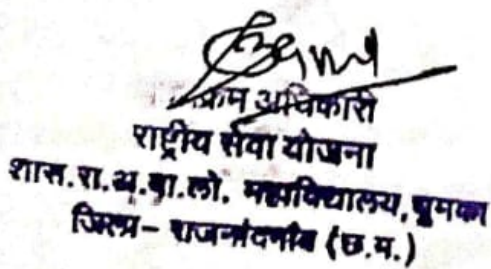 क्रम अधिकारी
राष्ट्रीय सेवा योजना
शास.रा.अ.बा.लो. महाविद्यालय,घुमका
जिला- राजनांदगांव (छ.ग.)